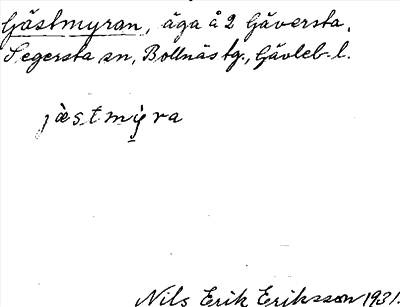 Gästmyran, äga å 2 Gäversta,
Segersta sn, Bollnäs tg., Gävleb. l.
jàstmỳ̠ra
Nils Erik Eriksson 1931.